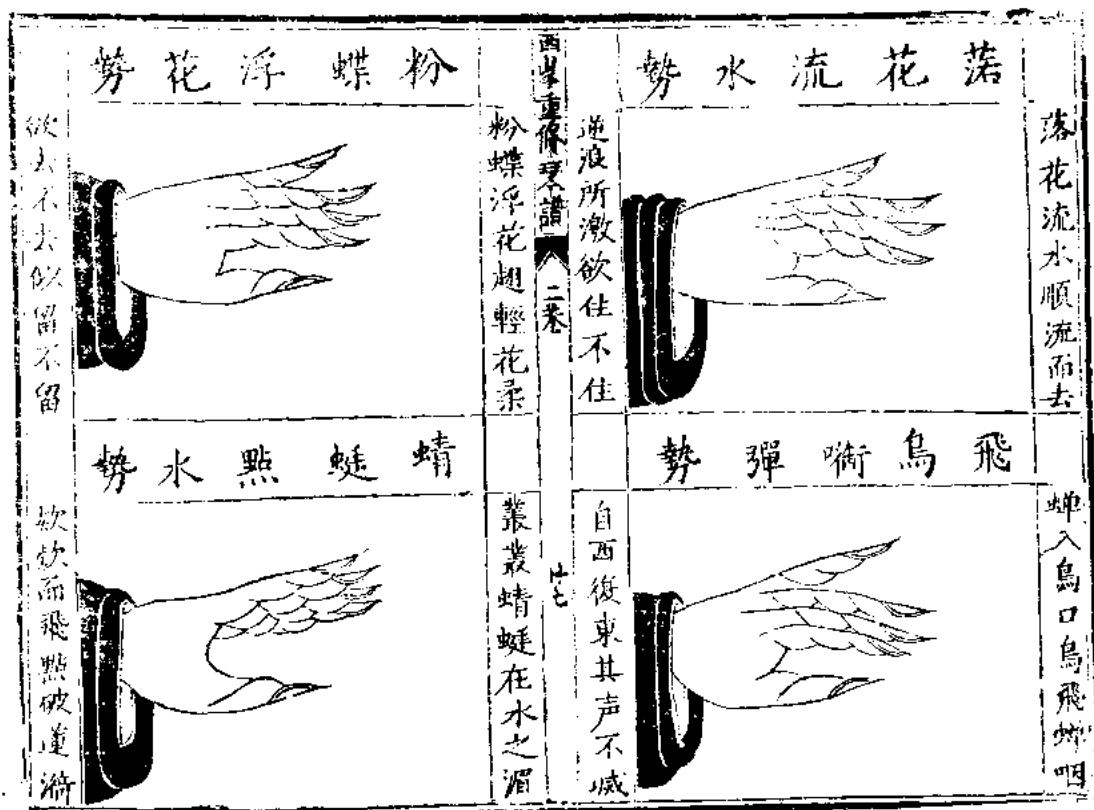 落花流水勢
落花流水順流而去
逆浪所激欲住不住
飛鳥啣彈勢
蟬入鳥口鳥飛蟬咽
自西復東其声不滅
西峯重修琴譜
二卷
廿七
粉蝶浮花勢
粉蝶浮花翅輕花柔
欲去不去似留不留
蜻蜓點水勢
叢叢蜻蜓在水之湄
欵欵而飛點破漣漪